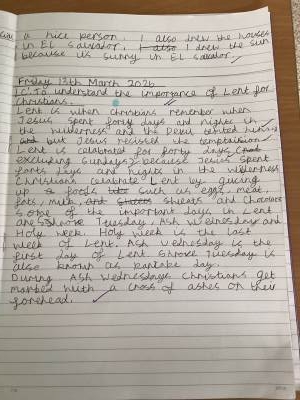 a nice person. I also drew the houses
in EL salvador. I also I drew the sun
because it's sunny in EL salvador.
Friday 13th March 2026
LC: To understand the importance of Lent for
Christians.
Lent is when christians remember when
Jesus spent forty days and nights in
the wilderness and the Devil
but Jesus
Lent is celebrated for forty days (and
excluding Sundays) because Jesus spent
forty days and nights in the wilderness
Christians celebrate Lent by
up foods such as eggs, meat,
fats, milk, and sweats and Chocolate
Some of the important days in Lent
are Shrove Tuesday, Ash Wednesday and
Holy week. Holy week is the last
week of Lent. Ash Wednesday is the
first day of Lent. Shrove Tuesday is
also known as pancake day.
During Ash Wednesdays Christians get
marked with a cross of ashes on their
forehead.